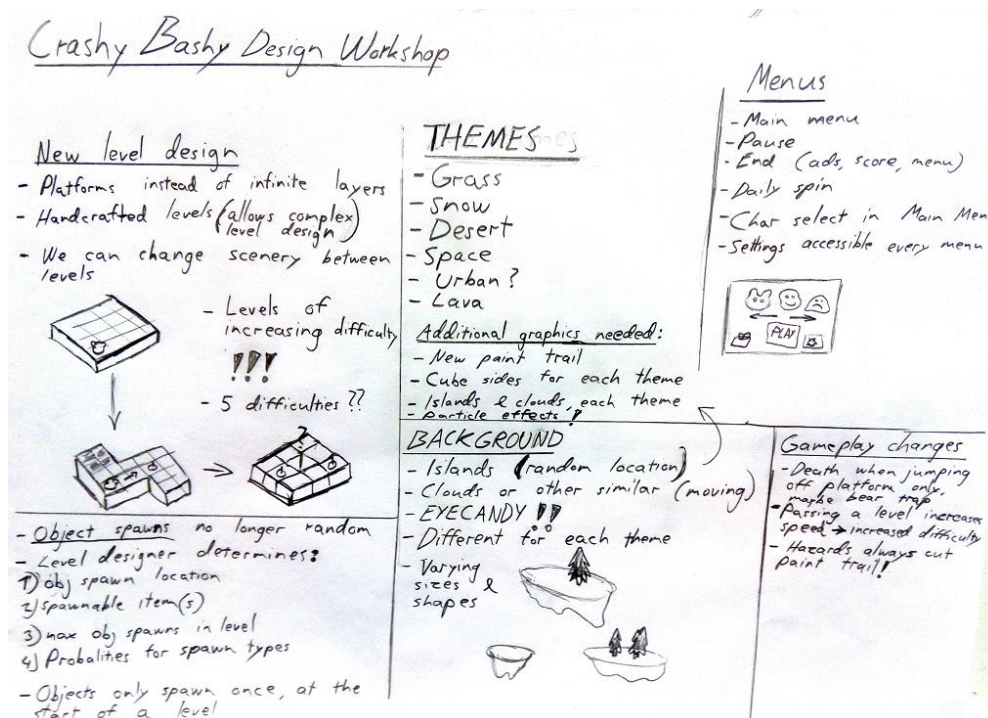 Crashy Bashy Design Workshop
New level design
- Platforms instead of infinite layers
- Handcrafted levels (allows complex
level design)
- We can change scenery between
levels
- Levels of
increasing difficulty
!!!
- 5 difficulties ??
- Object spawns no longer random
- Level designer determines:
1) obj spawn location
2) spawnable item(s)
3) max obj spawns in level
4) Probalities for spawn types
- Objects only spawn once, at the
start of a level
THEMES
- Grass
- Snow
- Desert
- Space
- Urban?
- Lava
Additional graphics needed:
- New paint trail
- Cube sides for each theme
- Islands & clouds, each theme
- Particle effects!
BACKGROUND
- Islands (random location)
- Clouds or other similar (moving)
- EYECANDY !!
- Different for each theme
- Varying
sizes &
shapes
Menus
- Main menu
- Pause
- End (ads, score, menu)
- Daily spin
- Char select in Main Men
- Settings accessible every menu
PLAY
Gameplay changes
- Death when jumping
off platform only,
maybe bear trap
- Passing a level increases
speed → increased difficulty
- Hazards always cut
paint trail!